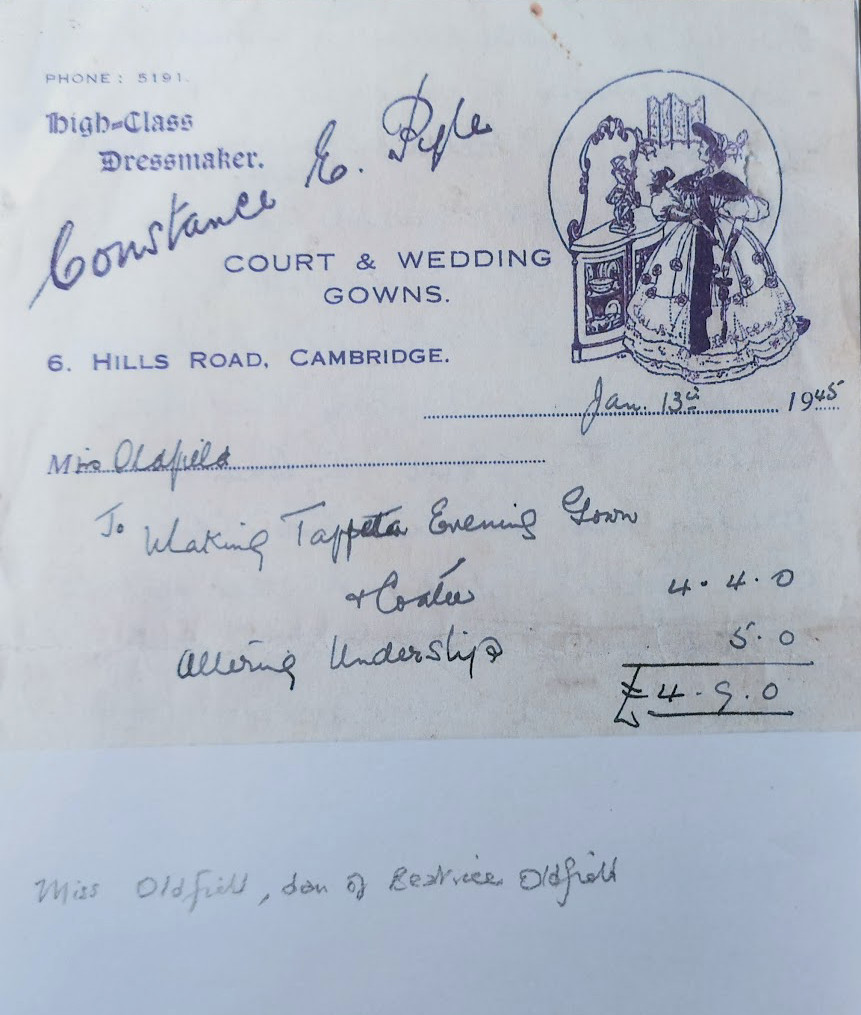 PHONE: 5191.
High-Class
Dressmaker.
Constance E. Pyle
COURT & WEDDING
GOWNS.
6. HILLS ROAD, CAMBRIDGE.
Jan. 13th 1945
Miss Oldfield
To Making Taffeta Evening Gown
+ Coatee 4. 4. 0
Altering Underslip 5. 0
£4. 9. 0
Miss Oldfield, dau of Beatrice Oldfield